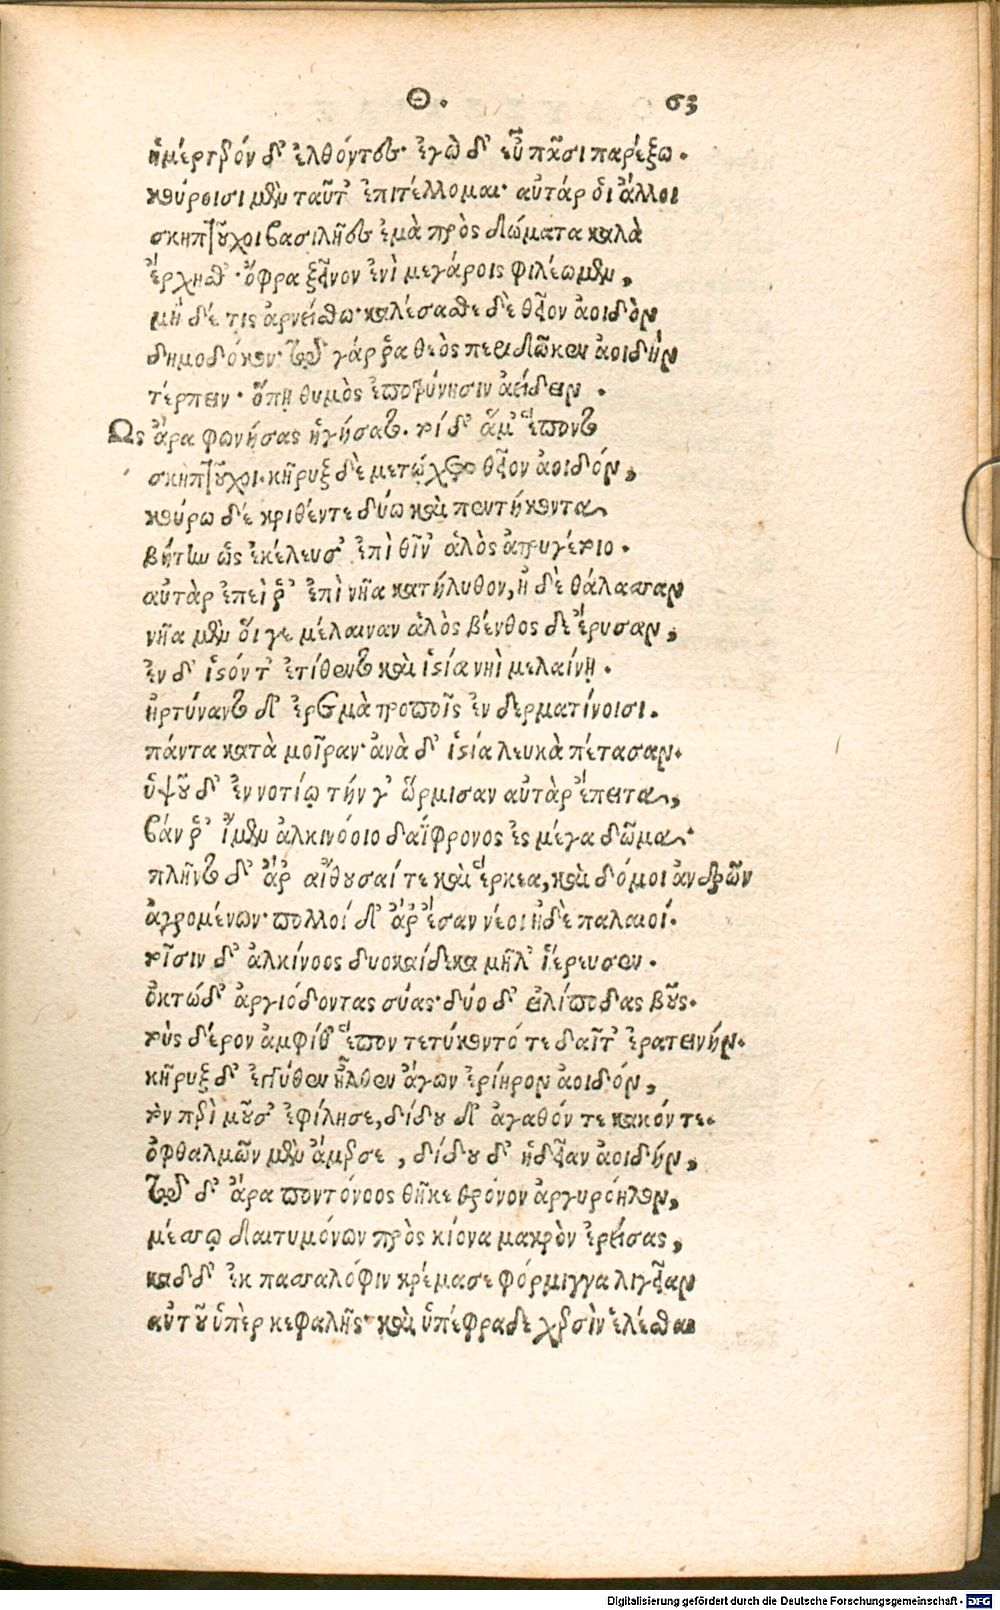 Θ. 63
ἡμέτερόν δ' ἐλθόντες· ἐγὼ δ' εὖ πᾶσι παρέξω.
κούροισι μὲν ταῦτ' ἐπιτέλλομαι· αὐτάρ οἱ ἄλλοι
σκηπτοῦχοι βασιλῆες ἐμὰ πρὸς δώματα καλὰ
ἔρχησθ'· ὄφρα ξεῖνον ἐνὶ μεγάροις φιλέωμεν,
μὴ δέ τις ἀρνείσθω· καλέσασθε δὲ θεῖον ἀοιδὸν
δημοδόκον· τῷ γάρ ῥα θεὸς περι δῶκεν ἀοιδὴν
τέρπειν· ὅπῃ θυμὸς ἐποτρύνησιν ἀείδειν.
Ως ἄρα φωνήσας ἡγήσατο. τοὶ δ' ἅμ' ἕποντο
σκηπτοῦχοι· κῆρυξ δὲ μετῴχετο θεῖον ἀοιδόν,
κούρω δέ κριθέντε δύω καὶ πεντήκοντα
βήτην ὡς ἐκέλευσ' ἐπὶ θῖν' ἁλὸς ἀτρυγέτοιο.
αὐτὰρ ἐπεὶ ῥ' ἐπὶ νῆα κατήλυθον, ἠ δὲ θάλασσαν
νῆα μὲν οἵ γε μέλαιναν ἁλὸς βένθος δὲ ἔρυσαν,
ἐν δ' ἱστόν τ' ἐτίθεντο καὶ ἱστία νηῒ μελαίνῃ.
ἠρτύναντο δ' ἐρετμὰ τροποῖς ἐν δερματίνοισι.
πάντα κατὰ μοῖραν· ἀνὰ δ' ἱστία λευκὰ πέτασαν.
ὑψοῦ δ' ἐν νοτίῳ τήν γ' ὥρμισαν αὐτὰρ ἔπειτα,
βάν ῥ' ἴμεν ἀλκινόοιο δαΐφρονος ἐς μέγα δῶμα·
πλῆντο δ' ἄρ αἴθουσαί τε καὶ ἕρκεα, καὶ δόμοι ἀνδρῶν
ἀγρομένων· πολλοί δ' ἄρ' ἔσαν νέοι ἠδὲ παλαιοί.
τοῖσιν δ' ἀλκίνοος δυοκαίδεκα μῆλ' ἱέρευσεν.
ὀκτώ δ' ἀργιόδοντας σύας· δύο δ' εἰλίποδας βοῦς.
τοὺς δέρον ἀμφίθ' ἕπον τετύκοντό τε δαῖτ' ἐρατεινήν.
κῆρυξ δ' ἐγγύθεν ἦλθεν ἄγων ἐρίηρον ἀοιδόν,
τὸν περὶ μοῦσ' ἐφίλησε, δίδου δ' ἀγαθόν τε κακόν τε.
ὀφθαλμῶν μὲν ἄμερσε, δίδου δ' ἡδεῖαν ἀοιδήν,
τῷ δ' ἄρα ποντόνοος θῆκε θρόνον ἀργυρόηλον,
μέσσῳ δαιτυμόνων πρὸς κίονα μακρὸν ἐρείσας,
καδ δ' ἐκ πασσαλόφιν κρέμασε φόρμιγγα λιγεῖαν
αὐτοῦ ὑπὲρ κεφαλῆς· καὶ ὑπέφραδε χερσὶν ἑλέσθαι
Digitalisierung gefördert durch die Deutsche Forschungsgemeinschaft - DFG